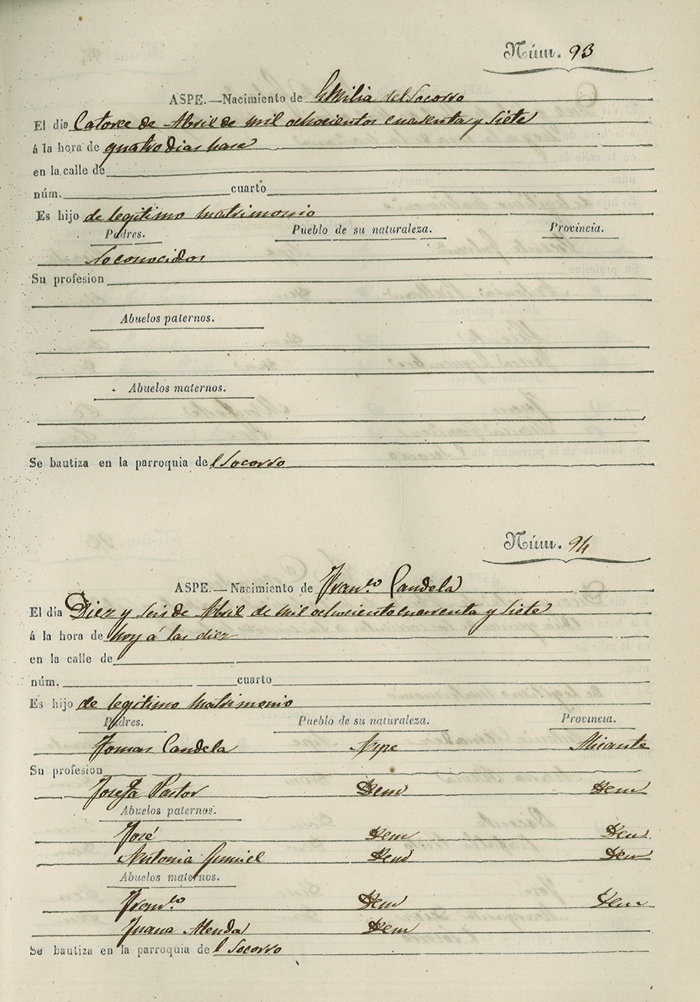 Núm. 93
ASPE.—Nacimiento de Emilia del Socorro
El dio Catorce de Abril de mil ochocientos cuarenta y siete
á la hora de quatro dias hace
en la calle de
núm. cuarto
Es hijo de legitimo matrimonio
Padres. Pueblo de su naturaleza. Provincia.
Su profesion
Abuelos paternos.
Abuelos maternos.
Se bautiza en la parroquia del Socorro
Núm. 94
ASPE.—Nacimiento de Fran.co Candela
El día Diez y seis de Abril de mil ochociento cuarenta y siete
á la hora de hoy á las diez
en la calle de
núm. cuarto
Es hijo de legitimo matrimonio
Padres. Pueblo de su naturaleza. Provincia.
Tomas Candela Aspe Alicante
Su profesion
Josefa Pastor Idem Idem
Abuelos paternos.
José Idem Idem
Antonia Idem Idem
Abuelos maternos.
Fran.co Idem Idem
Juana Alenda Idem
Se bautiza en la parroquia de l Socorro